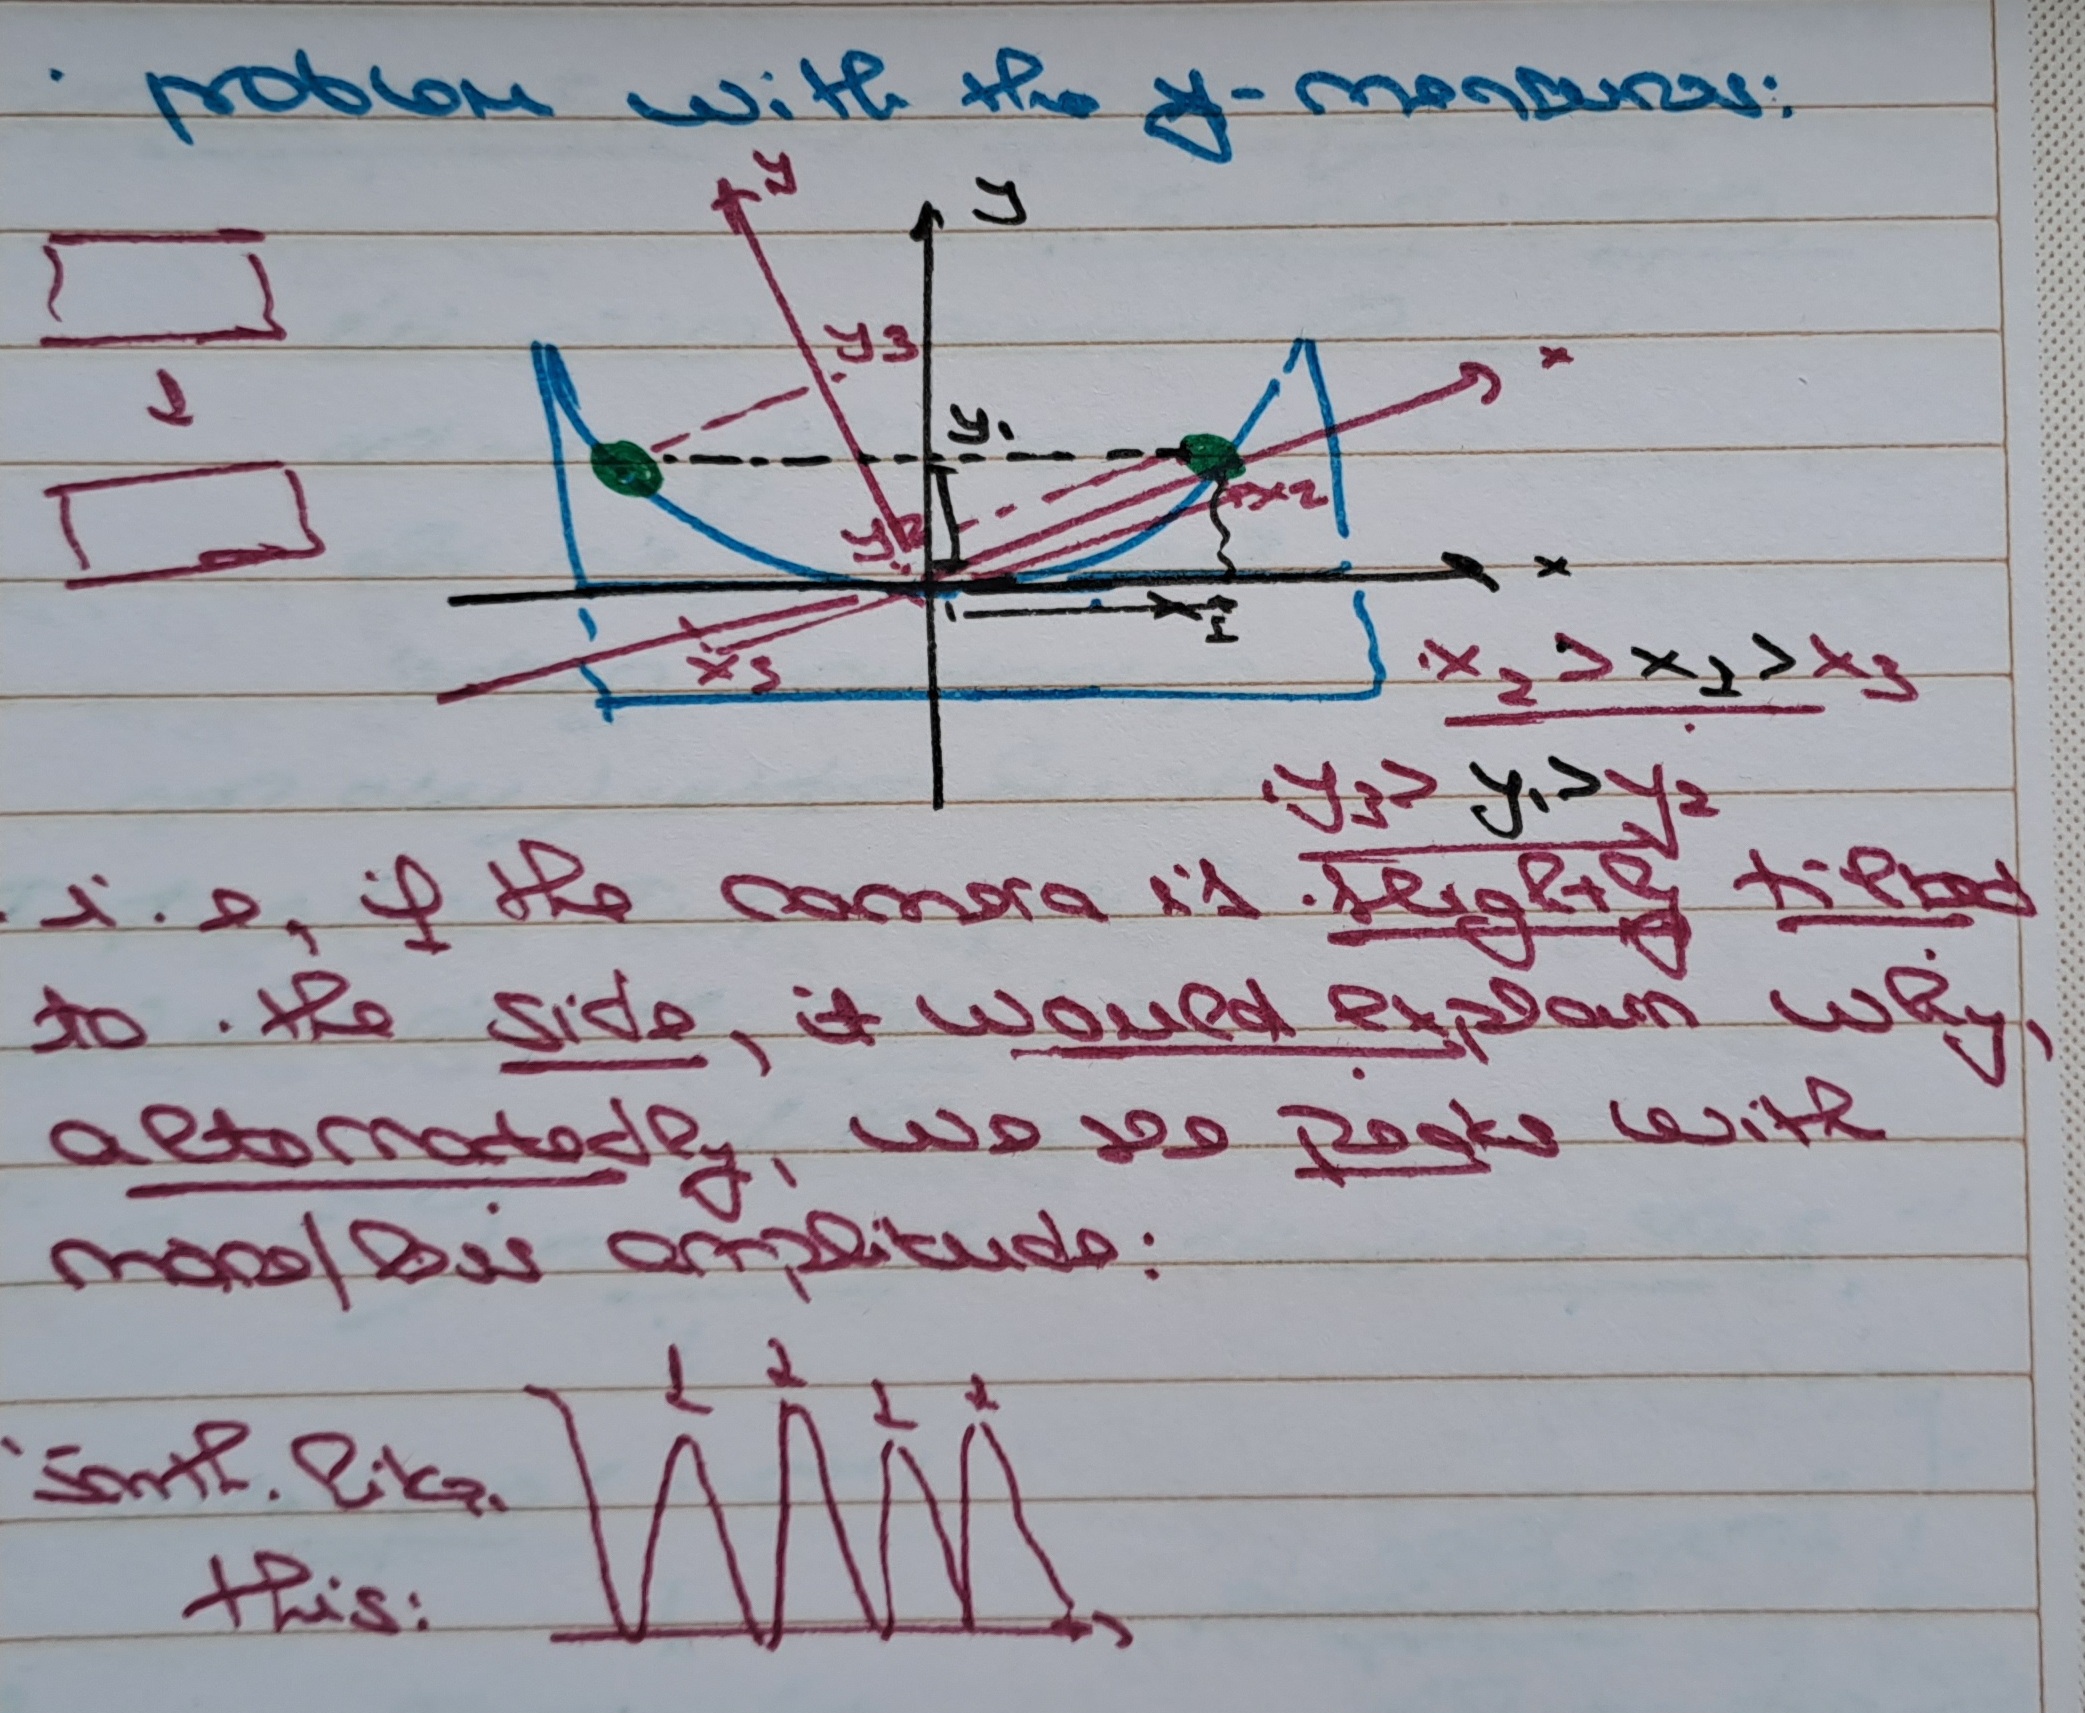 problem with the y-measures:
y
y
y3
x
y1
x2
y2
x
x1
x3
x2 > x1 > x3
y3 > y1 > y2
i.e, if the camera is slightly tilted
to the side, it would explain why,
alternatedly, we see peaks with
more/less amplitude:
1 2 1 2
Smth. like
this: